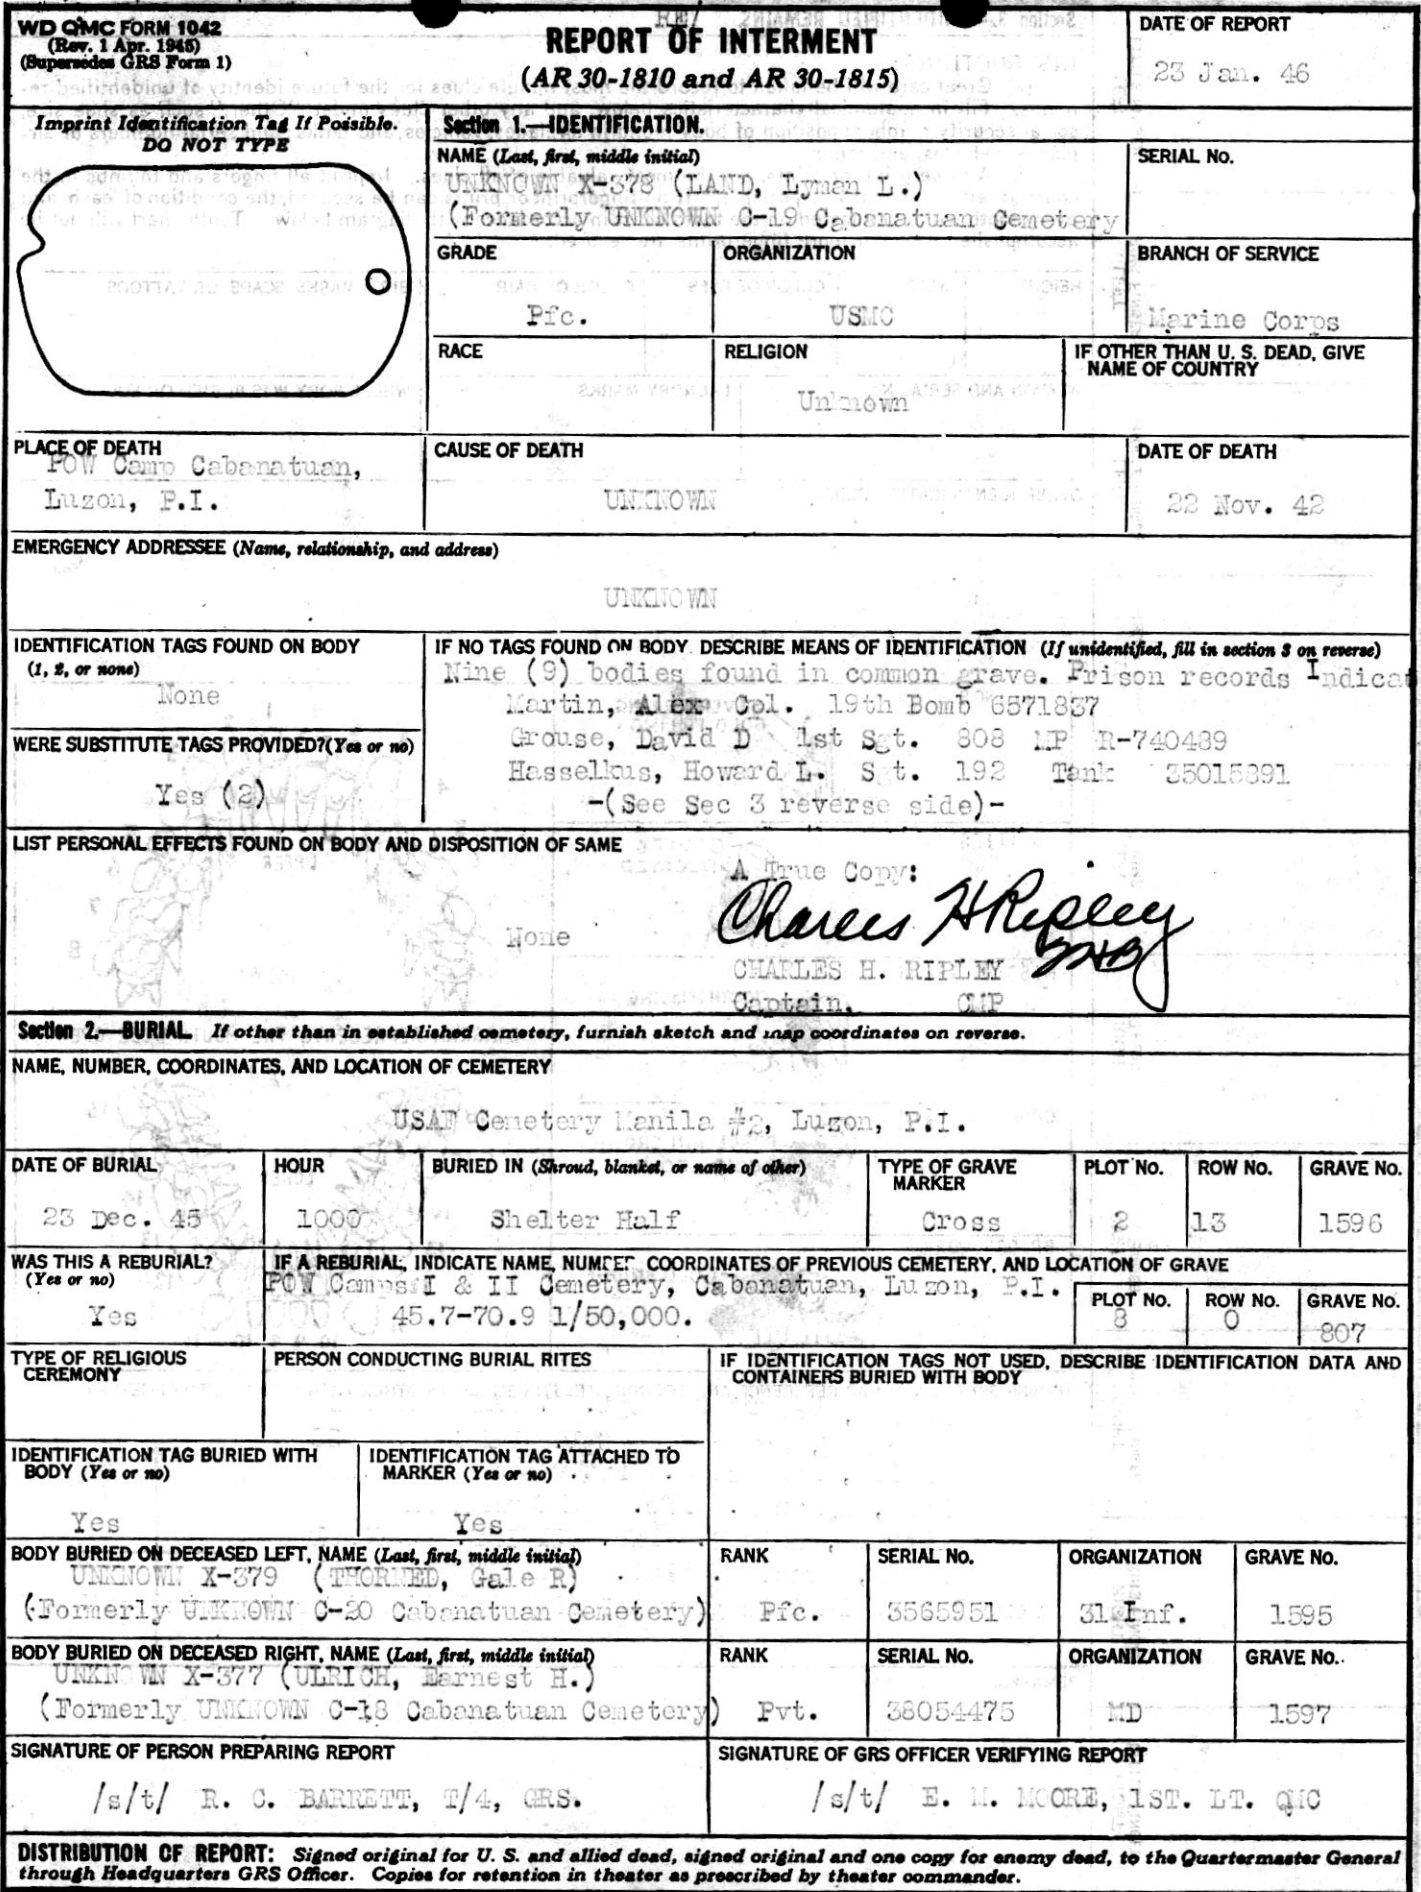 WD QMC FORM 1042
(Rev. 1 Apr. 1945)
(Supersedes GRS Form 1)
REPORT OF INTERMENT
(AR 30-1810 and AR 30-1815)
DATE OF REPORT
23 Jan. 46
Imprint Identification Tag If Possible.
DO NOT TYPE
Section 1.—IDENTIFICATION.
NAME (Last, first, middle initial)
UNKNOWN X-378 (LAND, Lyman L.)
(Formerly UNKNOWN C-19 Cabanatuan Cemetery
SERIAL No.
GRADE
Pfc.
ORGANIZATION
USMC
BRANCH OF SERVICE
Marine Corps
RACE
RELIGION
Unknown
IF OTHER THAN U. S. DEAD, GIVE
NAME OF COUNTRY
PLACE OF DEATH
POW Camp Cabanatuan,
Luzon, P.I.
CAUSE OF DEATH
UNKNOWN
DATE OF DEATH
22 Nov. 42
EMERGENCY ADDRESSEE (Name, relationship, and address)
UNKNOWN
IDENTIFICATION TAGS FOUND ON BODY
(1, 2, or none)
None
IF NO TAGS FOUND ON BODY DESCRIBE MEANS OF IDENTIFICATION (If unidentified, fill in section 3 on reverse)
Nine (9) bodies found in common grave. Prison records Indicat
Martin, Alex Cpl. 19th Bomb 6571837
Grouse, David D 1st Sgt. 808 MP R-740489
Hasselkus, Howard L. Sgt. 192 Tank 35015891
-(See Sec 3 reverse side)-
WERE SUBSTITUTE TAGS PROVIDED?(Yes or no)
Yes (2)
LIST PERSONAL EFFECTS FOUND ON BODY AND DISPOSITION OF SAME
None
A True Copy:
Charles H Ripley
CHARLES H. RIPLEY
Captain, CMP
Section 2.—BURIAL. If other than in established cemetery, furnish sketch and map coordinates on reverse.
NAME, NUMBER, COORDINATES, AND LOCATION OF CEMETERY
USAF Cemetery Manila #2, Luzon, P.I.
DATE OF BURIAL
23 Dec. 45
HOUR
1000
BURIED IN (Shroud, blanket, or name of other)
Shelter Half
TYPE OF GRAVE
MARKER
Cross
PLOT No.
2
ROW No.
13
GRAVE No.
1596
WAS THIS A REBURIAL?
(Yes or no)
Yes
IF A REBURIAL, INDICATE NAME, NUMBER COORDINATES OF PREVIOUS CEMETERY, AND LOCATION OF GRAVE
POW Camps I & II Cemetery, Cabanatuan, Luzon, P.I.
45.7-70.9 1/50,000.
PLOT No.
8
ROW No.
0
GRAVE No.
807
TYPE OF RELIGIOUS
CEREMONY
PERSON CONDUCTING BURIAL RITES
IF IDENTIFICATION TAGS NOT USED, DESCRIBE IDENTIFICATION DATA AND
CONTAINERS BURIED WITH BODY
IDENTIFICATION TAG BURIED WITH
BODY (Yes or no)
Yes
IDENTIFICATION TAG ATTACHED TO
MARKER (Yes or no)
Yes
BODY BURIED ON DECEASED LEFT, NAME (Last, first, middle initial)
UNKNOWN X-379 (THORNED, Gale R)
(Formerly UNKNOWN C-20 Cabanatuan Cemetery)
RANK
Pfc.
SERIAL No.
3565951
ORGANIZATION
31 Inf.
GRAVE No.
1595
BODY BURIED ON DECEASED RIGHT, NAME (Last, first, middle initial)
UNKNOWN X-377 (ULRICH, Earnest H.)
(Formerly UNKNOWN C-18 Cabanatuan Cemetery)
RANK
Pvt.
SERIAL No.
38054475
ORGANIZATION
MD
GRAVE No.
1597
SIGNATURE OF PERSON PREPARING REPORT
/s/t/ R. C. BARRETT, T/4, GRS.
SIGNATURE OF GRS OFFICER VERIFYING REPORT
/s/t/ E. M. MOORE, 1ST. LT. QMC
DISTRIBUTION OF REPORT: Signed original for U. S. and allied dead, signed original and one copy for enemy dead, to the Quartermaster General
through Headquarters GRS Officer. Copies for retention in theater as prescribed by theater commander.